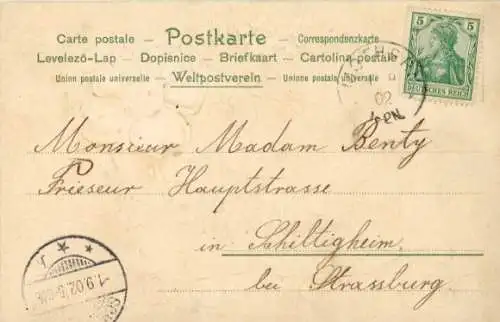 Carte postale – Postkarte – Correspondenzkarte
Levelező-Lap – Dopisnice – Briefkaart – Cartolina postale
Union postale universelle – Weltpostverein – Unione postale universale
5 5
DEUTSCHES REICH
02
Monsieur Madam Benty
Frieseur Hauptstrasse
in Schiltigheim
bei Strassburg.
1.9.02